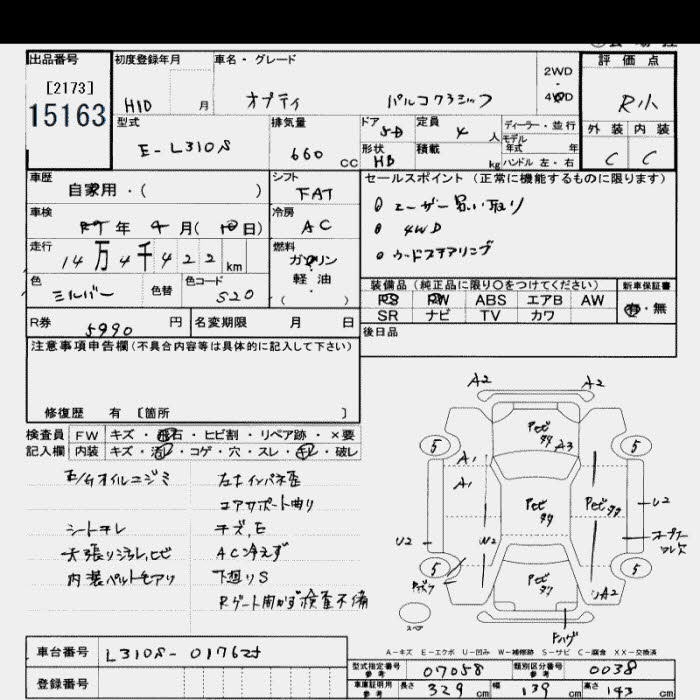 出品番号
[2173]
15163
初度登録年月
H10 月
車名・グレード
オプティ パルコクラシック
2WD
・
4WD
評価点
R小
型式
E-L310S
排気量
660 CC
ドア
5D
定員
4 人
ディーラー・並行
モデル
年式 年
形状
HB
積載
kg
ハンドル 左・右
外装 内装
C C
車歴
自家用・( )
シフト
FAT
車検
年 4月(10日)
冷房
AC
走行
14万4千422 km
燃料
ガソリン
軽油
( )
色
シルバー
色替
色コード
S20
セールスポイント (正常に機能するものに限ります)
ユーザー買い取り
4WD
ウッドステアリング
装備品 (純正品に限り○をつけてください)
新車保証書
PS PW ABS エアB AW
SR ナビ TV カワ
有・無
R券
5990 円
名変期限 月 日
後日品
注意事項申告欄(不具合内容等は具体的に記入して下さい)
修復歴 有 [箇所 ]
検査員
記入欄
FW キズ・飛石・ヒビ割・リペア跡・×要
内装 キズ・汚レ・コゲ・穴・スレ・キレ・破レ
E/Gオイルニジミ
シートキレ
天張り汚レ,ヒビ
左右インパネ歪
コアサポート曲り
キズ,E
AC冷えず
下廻りS
Rゲート開かず検査不備
A2 A2
A3
A1
A1
5 5
5 5
U2
U2
W2
A2
スペア
A-キズ E-エクボ U-凹み W-補修跡 S-サビ C-腐食 XX-交換済
車台番号
登録番号
型式指定番号
参考
07058
類別区分番号
参考
0038
車庫証明用
参考
長さ 329 cm
幅 139 cm
高さ 143 cm